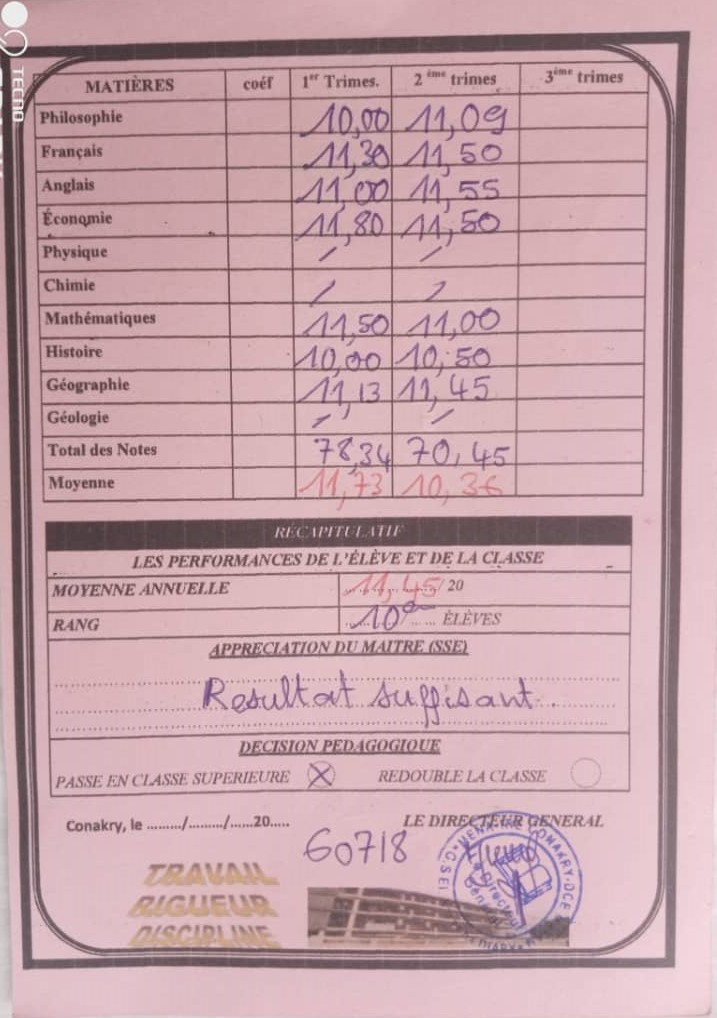 TECNO
MATIÈRES coéf 1er Trimes. 2ème trimes 3ème trimes
Philosophie 10,00 11,09
Français 11,30 11,50
Anglais 11,00 11,55
Économie 11,80 11,50
Physique / /
Chimie / /
Mathématiques 11,50 11,00
Histoire 10,00 10,50
Géographie 11,13 11,45
Géologie / /
Total des Notes 78,34 70,45
Moyenne 11,73 10,36
RÉCAPITULATIF
LES PERFORMANCES DE L'ÉLÈVE ET DE LA CLASSE
MOYENNE ANNUELLE 11,45/20
RANG 10e ÉLÈVES
APPRECIATION DU MAITRE (SSE)
Resultat suffisant
DECISION PEDAGOGIQUE
PASSE EN CLASSE SUPERIEURE X REDOUBLE LA CLASSE
Conakry, le ........./........./......20..... LE DIRECTEUR GENERAL
60718
TRAVAIL
RIGUEUR
DISCIPLINE
Directeur
Général